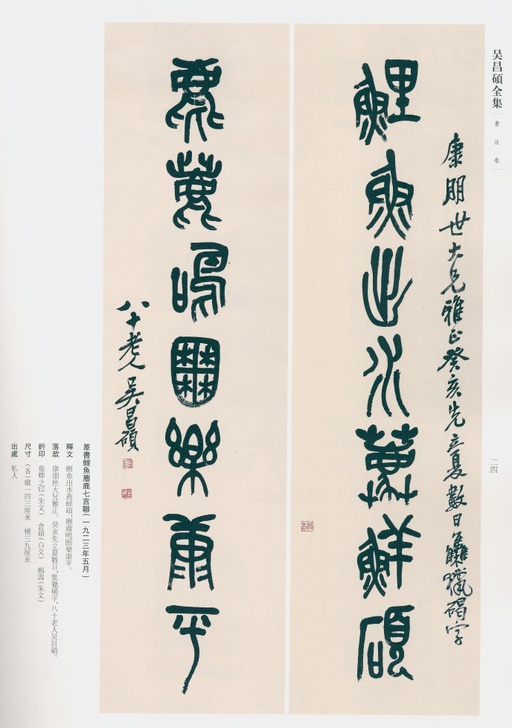 吴昌硕全集
書法卷
一二四
康朋世大兄雅正癸亥先立夏數日集獵碣字
鯉魚出水萬鮮碩
麀鹿鳴囿樂康平
八十老人吴昌碩
篆書鯉魚麀鹿七言聯(一九二三年五月)
釋文 鯉魚出水萬鮮碩,麀鹿鳴囿樂康平。
落款 康朋世大兄雅正。癸亥先立夏數日,集獵碣字,八十老人吴昌碩。
鈐印 俊卿之印(朱文) 倉碩(白文) 鶴壽(朱文)
尺寸 (各)縱一四三厘米 橫三九厘米
出處 私人